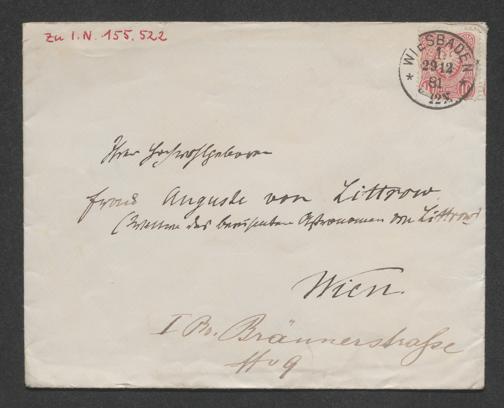 Zu I.N. 155.522
WIESBADEN
1
29 12
81
12N
Ihrer Hochwohlgeboren
Frau Auguste von Littrow
(Wittwe des berühmten Astronomen von Littrow)
Wien.
I Bz. Bräunerstraße
No 9